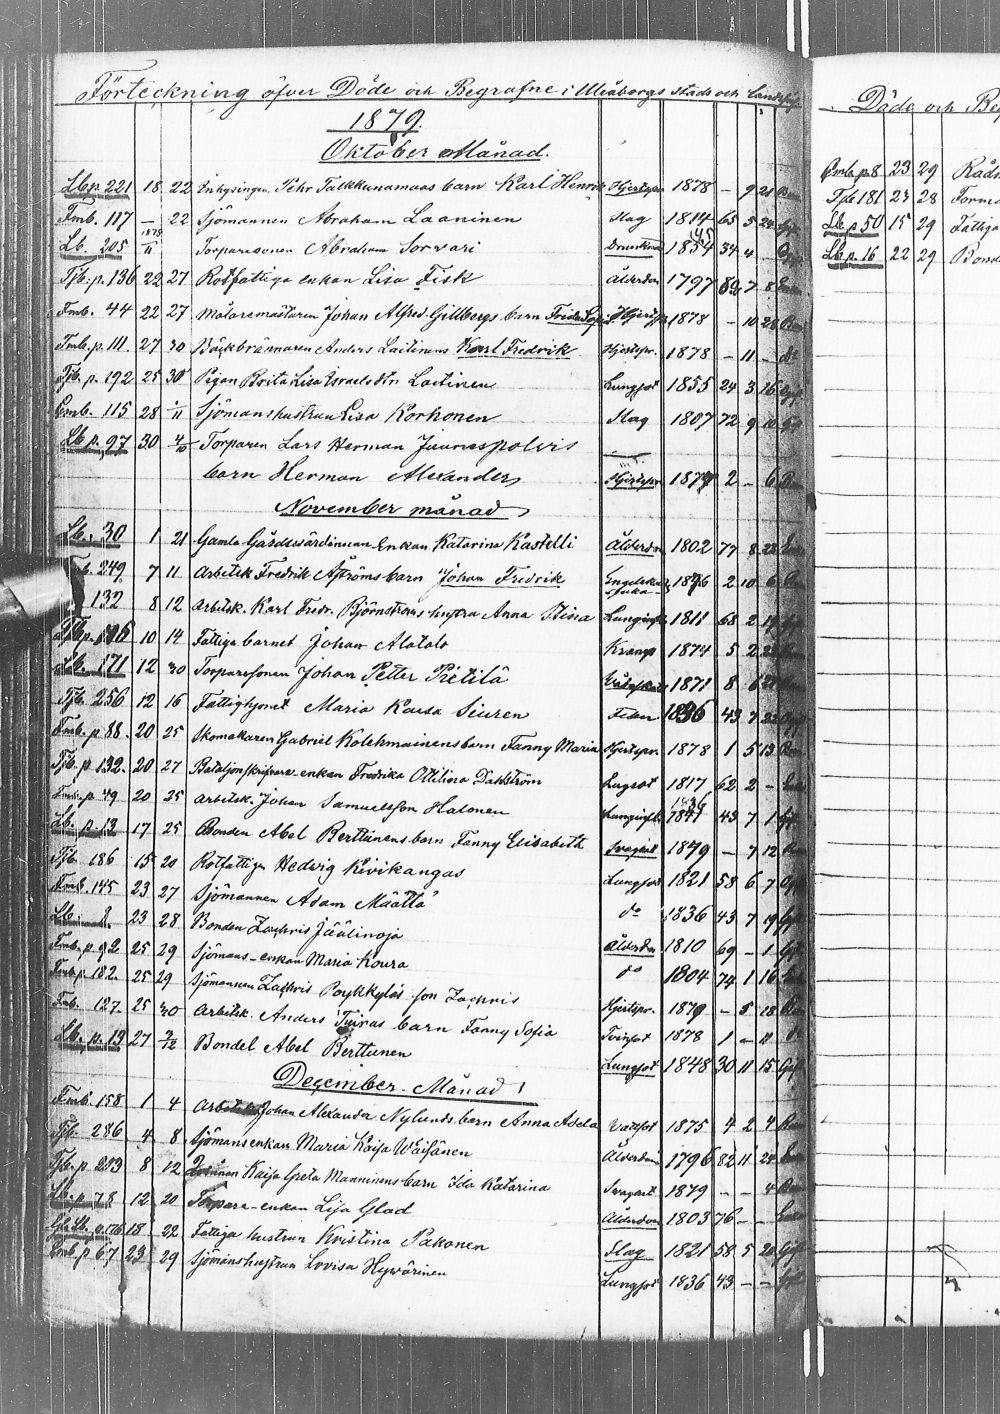 Förteckning öfver Döde och Begrafne i Uleåborgs stads och Landsfg
1879.
Oktober Månad.
Lb p 221 18 22 Inhysingen Pehr Talkkunamaas barn Karl Henrik Hjertspr 1878 – 9 21 Barn
Fmb. 117 – 22 Sjömannen Abraham Laaninen Slag 1814 65 5 24 Gift
Lb. 205 1878 11 Torparesonen Abraham Sorvari Drunknad 1854 45 34 4 – Ogift
Tjb. p. 136 22 27 Rotfattiga enkan Lisa Fisk Ålderdom 1797 82 7 8 Enka
Fmb. 44 22 27 Målaremästaren Johan Alfred Gillbergs barn Frida Hjertspr 1878 – 10 28 Barn
Fmb. p. 111. 27 30 Bäckbrännaren Anders Laitinens Karl Fredrik Hjertspr. 1878 – 11 – do
Tjb. p. 192 25 30 Pigan Brita Lisa Israelsdtr Laitinen Lungsot 1855 24 3 16 Ogift
Fmb. 115 28 1/11 Sjömanshustrun Lisa Korhonen Slag 1807 72 9 10 Gift
Lb p. 97 30 4/10 Torparen Lars Herman Juuruspolvis
barn Herman Alexander Hjertspr 1877 2 – 6 Barn
November månad
Lb. 30 1 21 Gamla Gårdsvärdinnan Enkan Katarina Kastelli Ålderdom 1802 77 8 23 Enka
249 7 11 Arbetsk Fredrik Åströms barn Johan Fredrik Engelska sjuka 1876 2 10 6 Barn
132 8 12 Arbetsk. Karl Fredr. Björnströms hustru Anna Stina 1811 68 2 19
10 14 Fattiga barnet Johan Alatalo Kramp 1874 5 2 23 Barn
Lb. 171 12 30 Torparesonen Johan Petter Pietilä 1871 8 6 21
Tjb. 256 12 16 Fattighjonet Maria Kaisa Siuren Feber 1836 43 7 23
Fmb. p 88. 20 25 Skomakaren Gabriel Kolehmainens barn Fanny Maria Hjertspr. 1878 1 5 13 Barn
Tjb. p. 132. 20 27 Bataljonskrifvare-enkan Fredrika Ottiliana Dahlström Lungsot 1817 62 2 – Enka
Fmb. p. 49 20 25 Arbetsk. Johan Samuelsson Halonen 1836 1841 43 7 1 Gift
Lb. p. 13 17 25 Bonden Abel Berttunens barn Fanny Elisabeth Svaghet 1879 – 7 12 Barn
Tjb. 186 15 20 Rotfattiga Hedvig Kivikangas Lungsot 1821 58 6 7 Ogift
Fmb. 145 23 27 Sjömannen Adam Määttä do 1836 43 7 19 Gift
Lb. 2 23 28 Bonden Zachris Jäälinoja Ålderdom 1810 69 – 1 Gift
Fmb. p. 92 25 29 Sjömans-enkan Maria Koura do 1804 74 1 16 Enka
Fmb. p. 182. 25 29 Sjömannen Zachris Poykkyläs son Zachris Hjertspr. 1879 – 5 18 Barn
Fmb. 127. 25 30 Arbetsk. Anders Tuiras barn Fanny Sofia Tvinsot 1878 1 – 11 do
Lb. p. 13 27 3/12 Bondel Abel Berttunen Lungsot 1848 30 11 15 Gift
December Månad
Fmb. 158 1 4 Arbetsk Johan Alexander Nylunds barn Anna Adela Vattsot 1875 4 2 4 Barn
Tjb. 286 4 8 Sjömansenkan Maria Kaisa Wäisänen Ålderdom 1796 82 11 24 Enka
Tjb. p. 213 8 12 Qvinnan Kaisa Greta Manninens barn Ida Katarina Svaghet 1879 – – 4 Barn
Lb p. 78 12 20 Torpare-enkan Lisa Glad Ålderdom 1803 76 – – Enka
18 22 Fattiga hustrun Kristina Pakonen Slag 1821 58 5 20 Gift
Fmb. p 67 23 29 Sjömanshustrun Lovisa Hyvärinen Lungsot 1836 43 – – Gift
Döde och Beg
Fmb. p. 8 23 29 Rådm
Tjb 181 23 28 Forma
Lb p 50 15 29 Fattiga
Lb p. 16 22 29 Bond